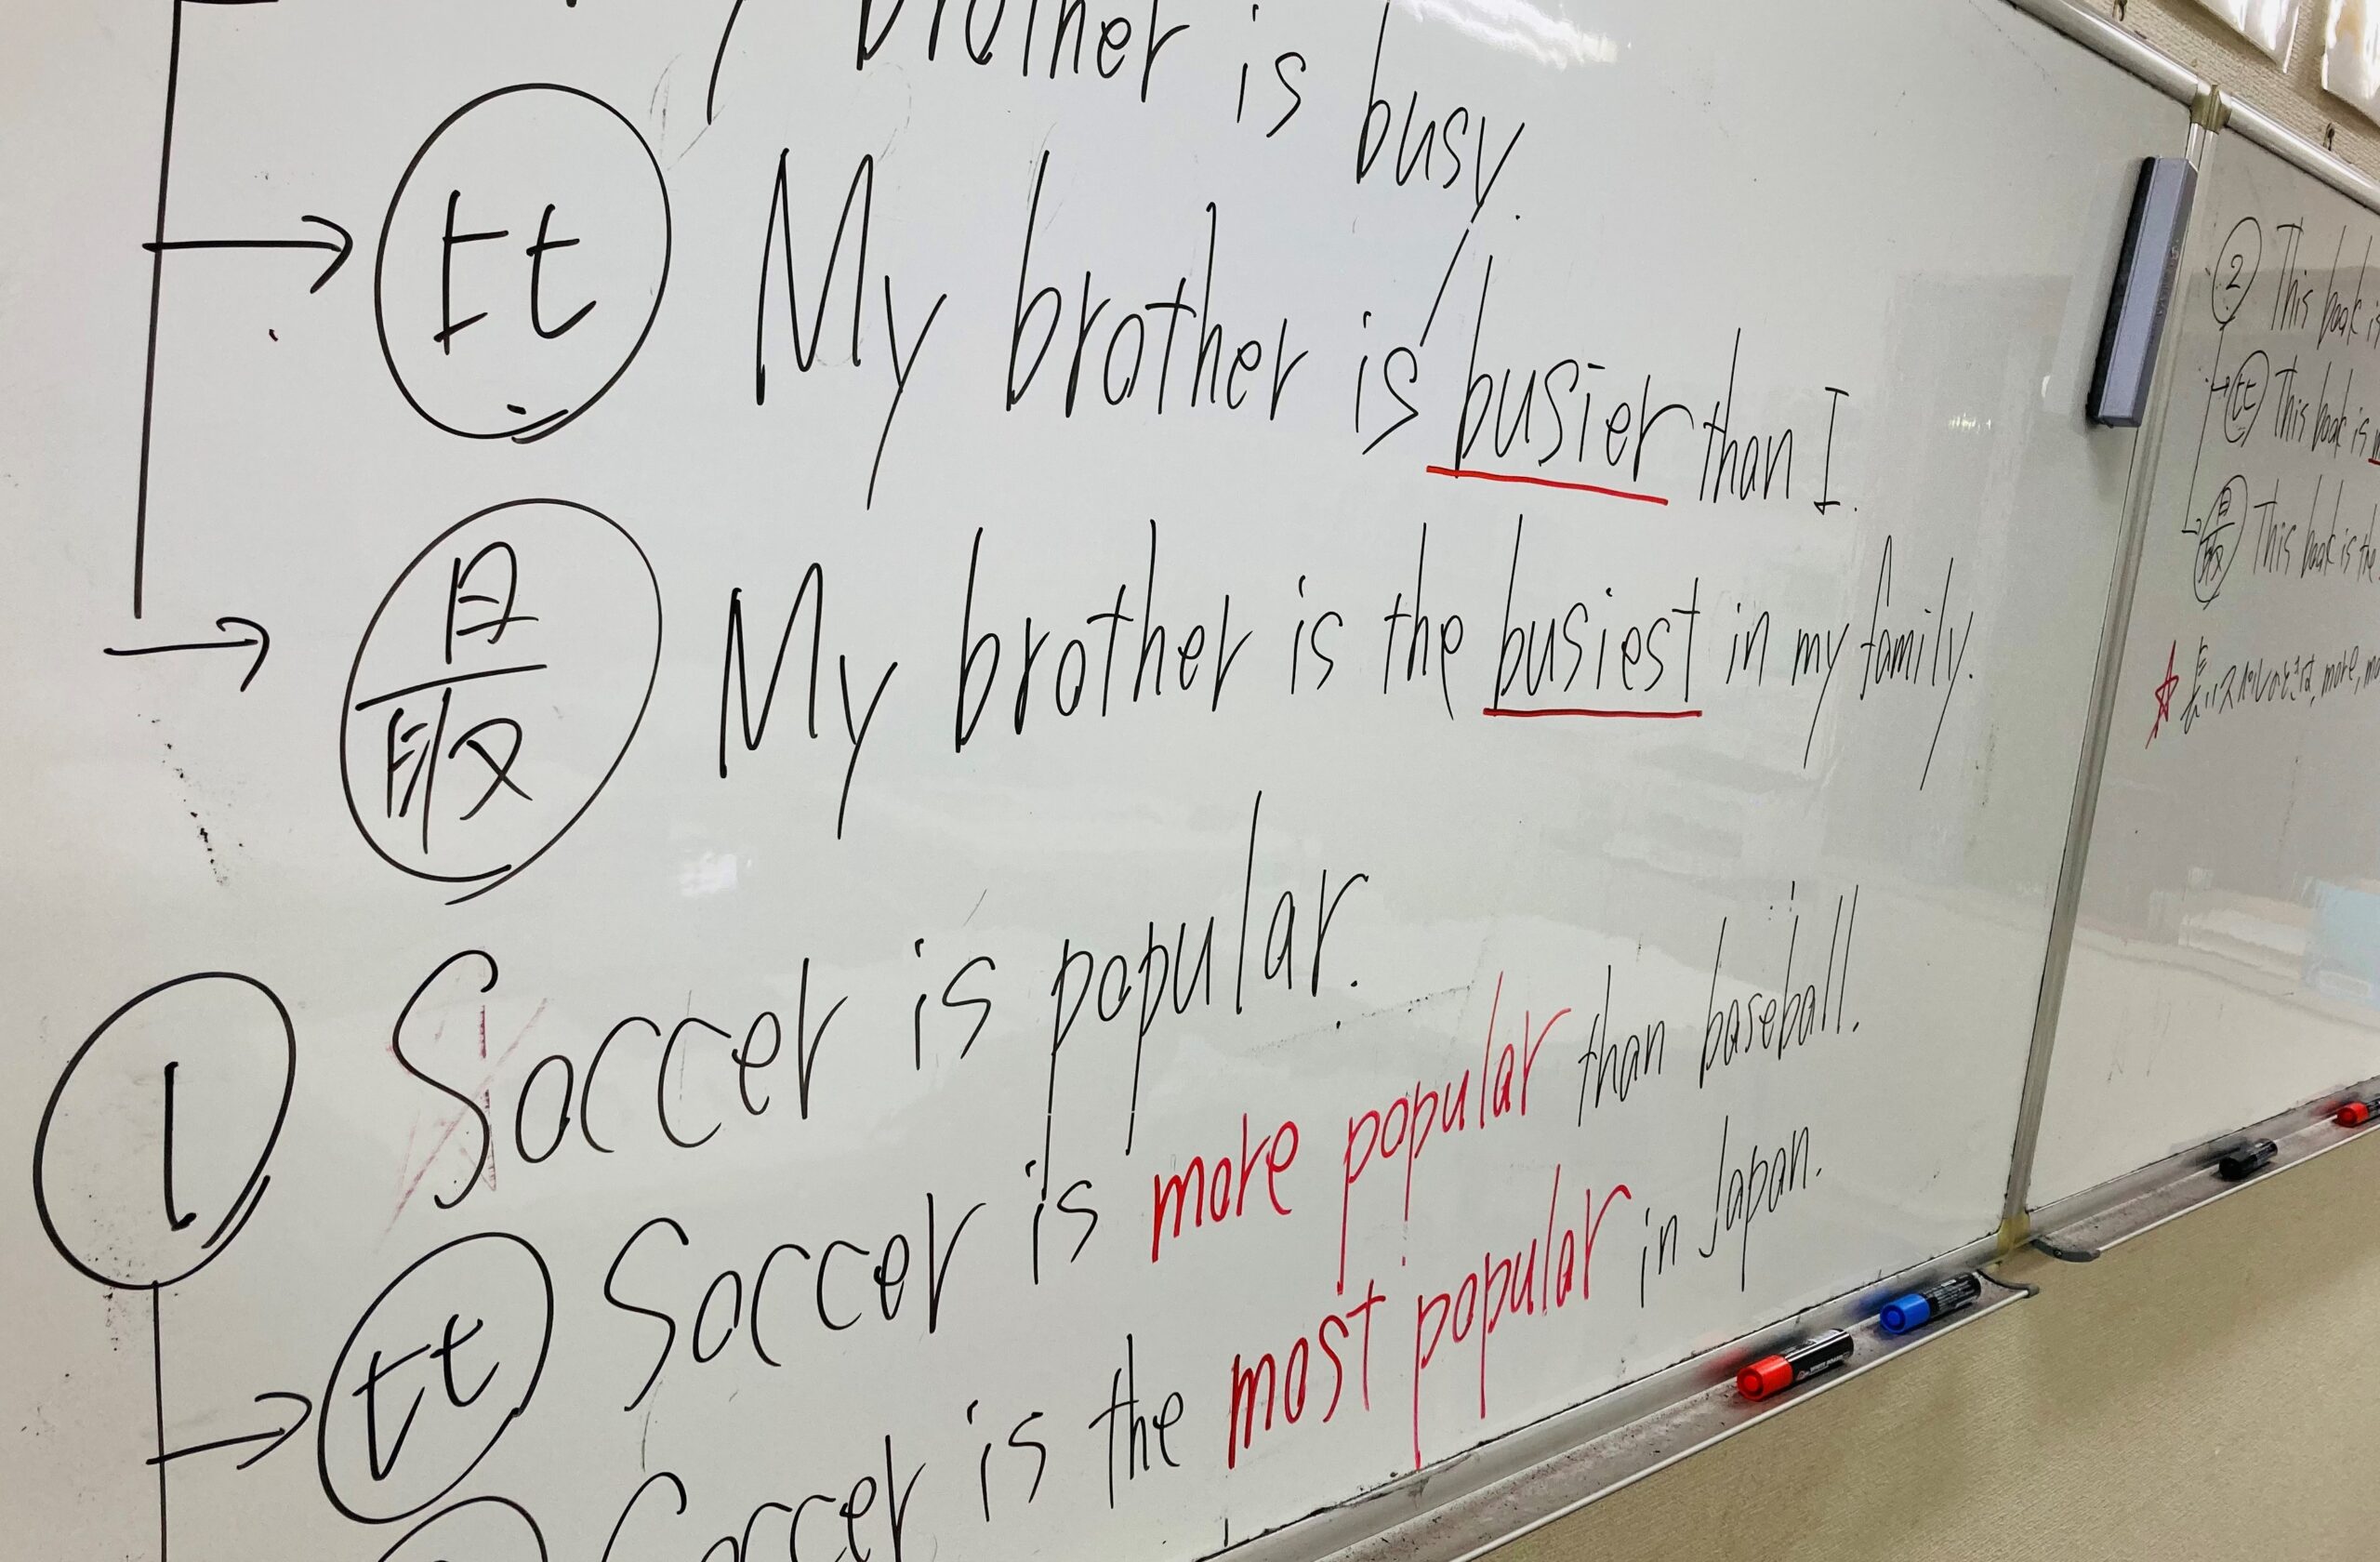 brother is busy.
比 My brother is busier than I.
最 My brother is the busiest in my family.
1 Soccer is popular.
比 Soccer is more popular than baseball.
Soccer is the most popular in Japan.
2 This book is
比 This book is
最 This book is the
☆長いスペルのときは, more,